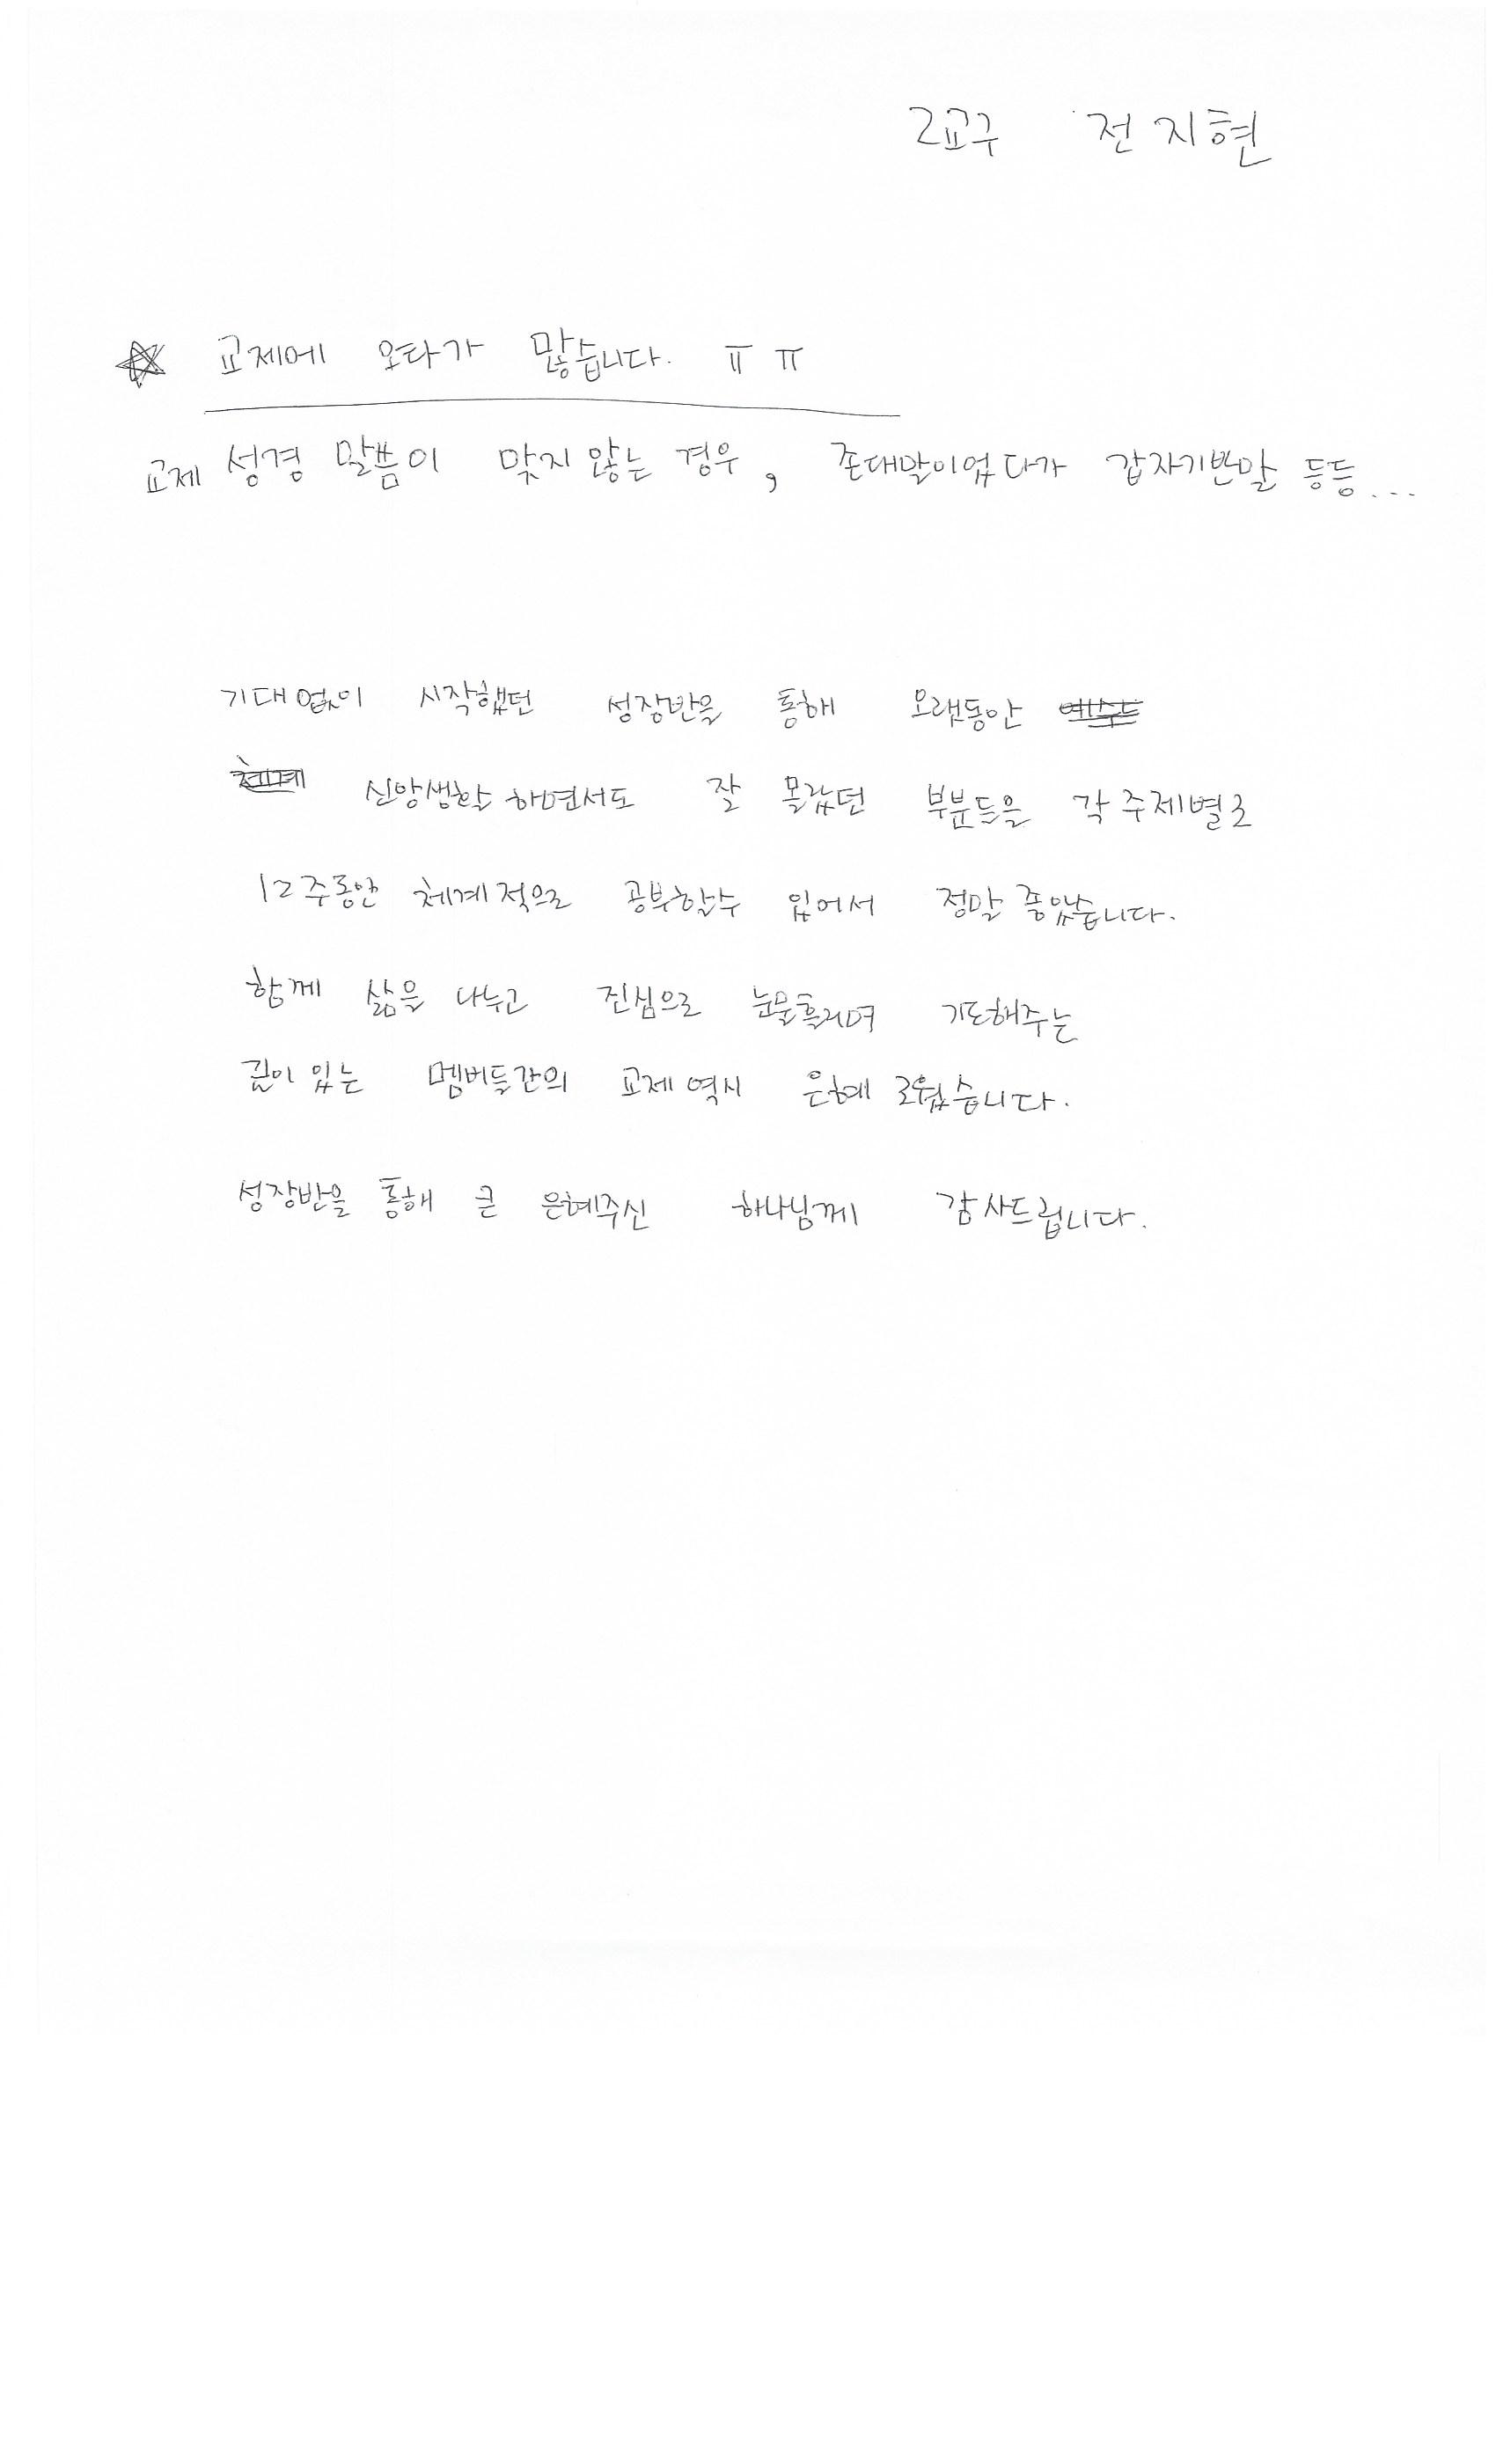 2교구 전지현
☆ 교제에 오타가 많습니다. ㅠㅠ
교제 성경 말씀이 맞지 않는 경우, 존대말이었다가 갑자기반말 등등...
기대없이 시작했던 성장반을 통해 오랫동안
신앙생활 하면서도 잘 몰랐던 부분들을 각 주제별로
12주동안 체계적으로 공부할수 있어서 정말 좋았습니다.
함께 삶을 나누고 진심으로 눈물흘리며 기도해주는
깊이 있는 멤버들간의 교제 역시 은혜로웠습니다.
성장반을 통해 큰 은혜주신 하나님께 감사드립니다.